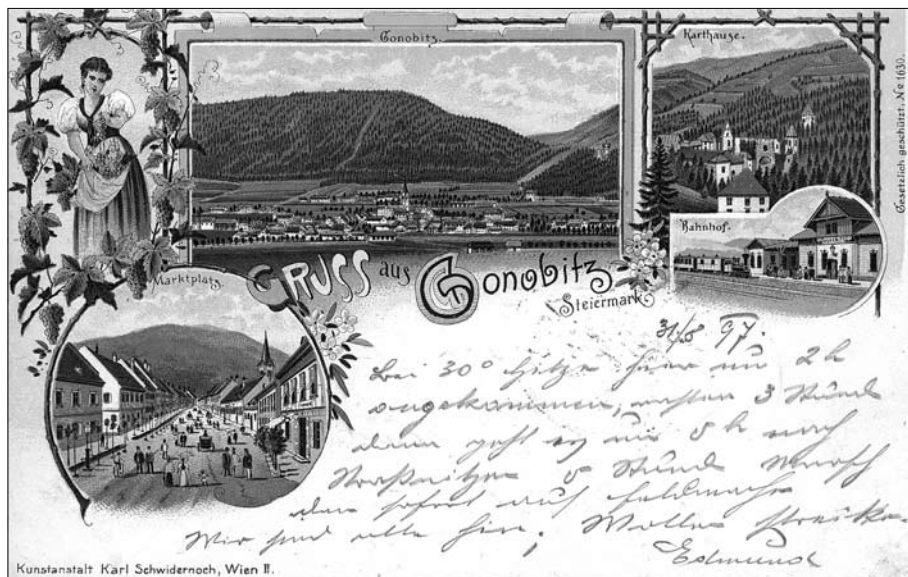 Gonobitz.
Karthause.
Gesetzlich geschützt. No 1630.
Bahnhof.
Marktplatz.
GRUSS aus Gonobitz
Steiermark
31/8 97.
Bei 30° Hitze hier um 2 h
angekommen, rasten 3 Stund
dann geht es um 5 h nach
5 Stund Marsch
dann sofort auf Feldwache
Wir sind alle hin; Wollen streiken.
Edmund
Kunstanstalt Karl Schwidernoch, Wien II.